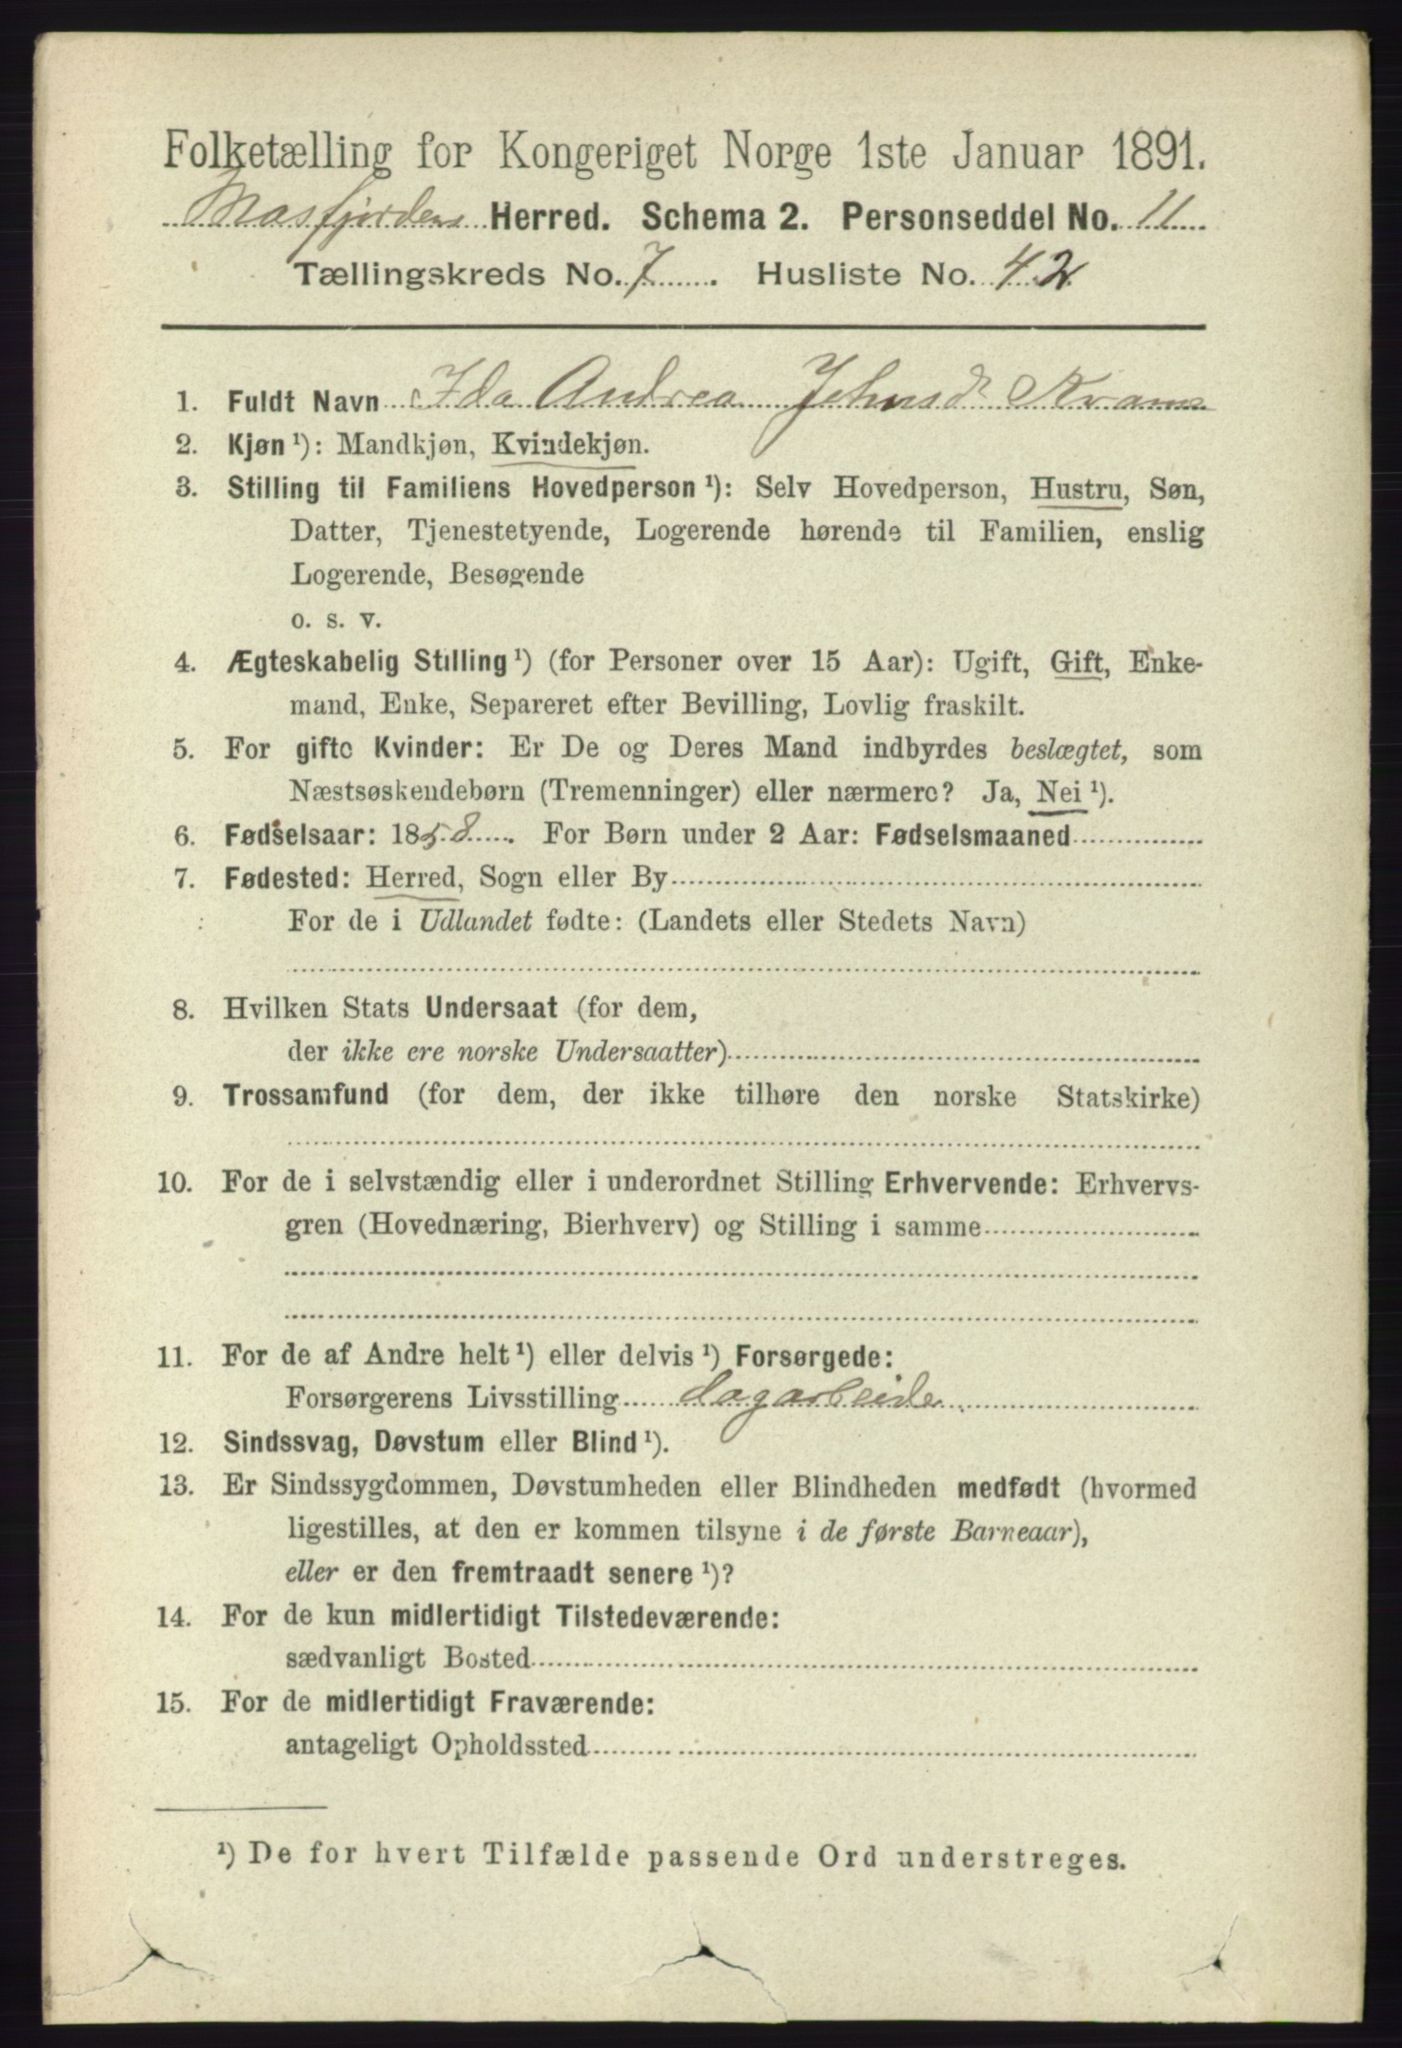 Folketælling for Kongeriget Norge 1ste Januar 1891.
Masfjordens Herred. Schema 2. Personseddel No. 11
Tællingskreds No. 7. Husliste No. 42
1. Fuldt Navn Ida Andrea Johnsd Kvams
2. Kjøn ¹): Mandkjøn, Kvindekjøn.
3. Stilling til Familiens Hovedperson ¹): Selv Hovedperson, Hustru, Søn,
Datter, Tjenestetyende, Logerende hørende til Familien, enslig
Logerende, Besøgende
o. s. v.
4. Ægteskabelig Stilling ¹) (for Personer over 15 Aar): Ugift, Gift, Enke-
mand, Enke, Separeret efter Bevilling, Lovlig fraskilt.
5. For gifte Kvinder: Er De og Deres Mand indbyrdes beslægtet, som
Næstsøskendebørn (Tremenninger) eller nærmere? Ja, Nei ¹).
6. Fødselsaar: 1858. For Børn under 2 Aar: Fødselsmaaned
7. Fødested: Herred, Sogn eller By
For de i Udlandet fødte: (Landets eller Stedets Navn)
8. Hvilken Stats Undersaat (for dem,
der ikke ere norske Undersaatter)
9. Trossamfund (for dem, der ikke tilhøre den norske Statskirke)
10. For de i selvstændig eller i underordnet Stilling Erhvervende: Erhvervs-
gren (Hovednæring, Bierhverv) og Stilling i samme
11. For de af Andre helt ¹) eller delvis ¹) Forsørgede:
Forsørgerens Livsstilling dagarbeide
12. Sindssvag, Døvstum eller Blind ¹).
13. Er Sindssygdommen, Døvstumheden eller Blindheden medfødt (hvormed
ligestilles, at den er kommen tilsyne i de første Barneaar),
eller er den fremtraadt senere ¹)?
14. For de kun midlertidigt Tilstedeværende:
sædvanligt Bosted
15. For de midlertidigt Fraværende:
antageligt Opholdssted
¹) De for hvert Tilfælde passende Ord understreges.